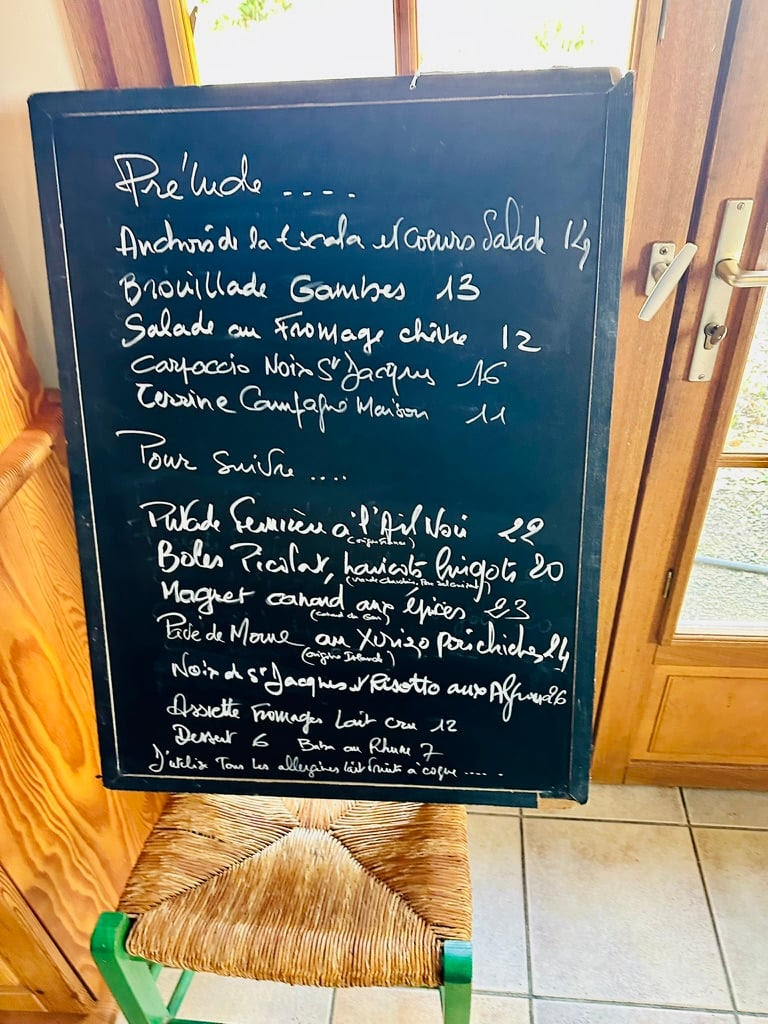 Prélude ....
Anchois de la Escala et Coeurs Salade 14
Brouillade Gambes 13
Salade au Fromage chèvre 12
Carpaccio Noix St Jacques 16
Terrine Campagne Maison 11
Pour Suivre ....
Pintade Fermière à l'Ail Noir 22
(origine France)
Boles Picolat, haricots lingots 20
Magret canard aux épices 23
(Canard du Gers)
Pavé de Morue au Xorizo pois chiches 24
(origine Islande)
Noix de St Jacques et Risotto aux Algues 26
Assiette Fromages Lait cru 12
Dessert 6 Baba au Rhum 7
J'utilise Tous les allergènes lait fruits à coque .....